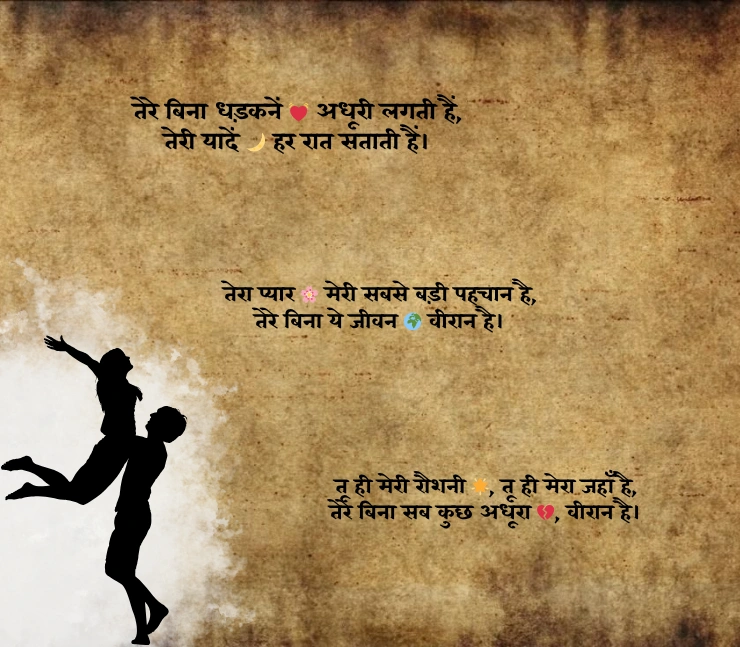 तेरे बिना धड़कनें ❤️ अधूरी लगती हैं,
तेरी यादें 🌙 हर रात सताती हैं।
तेरा प्यार 🌸 मेरी सबसे बड़ी पहचान है,
तेरे बिना ये जीवन 🌍 वीरान है।
तू ही मेरी रौशनी ☀️, तू ही मेरा जहाँ है,
तेरे बिना सब कुछ अधूरा 💔, वीरान है।